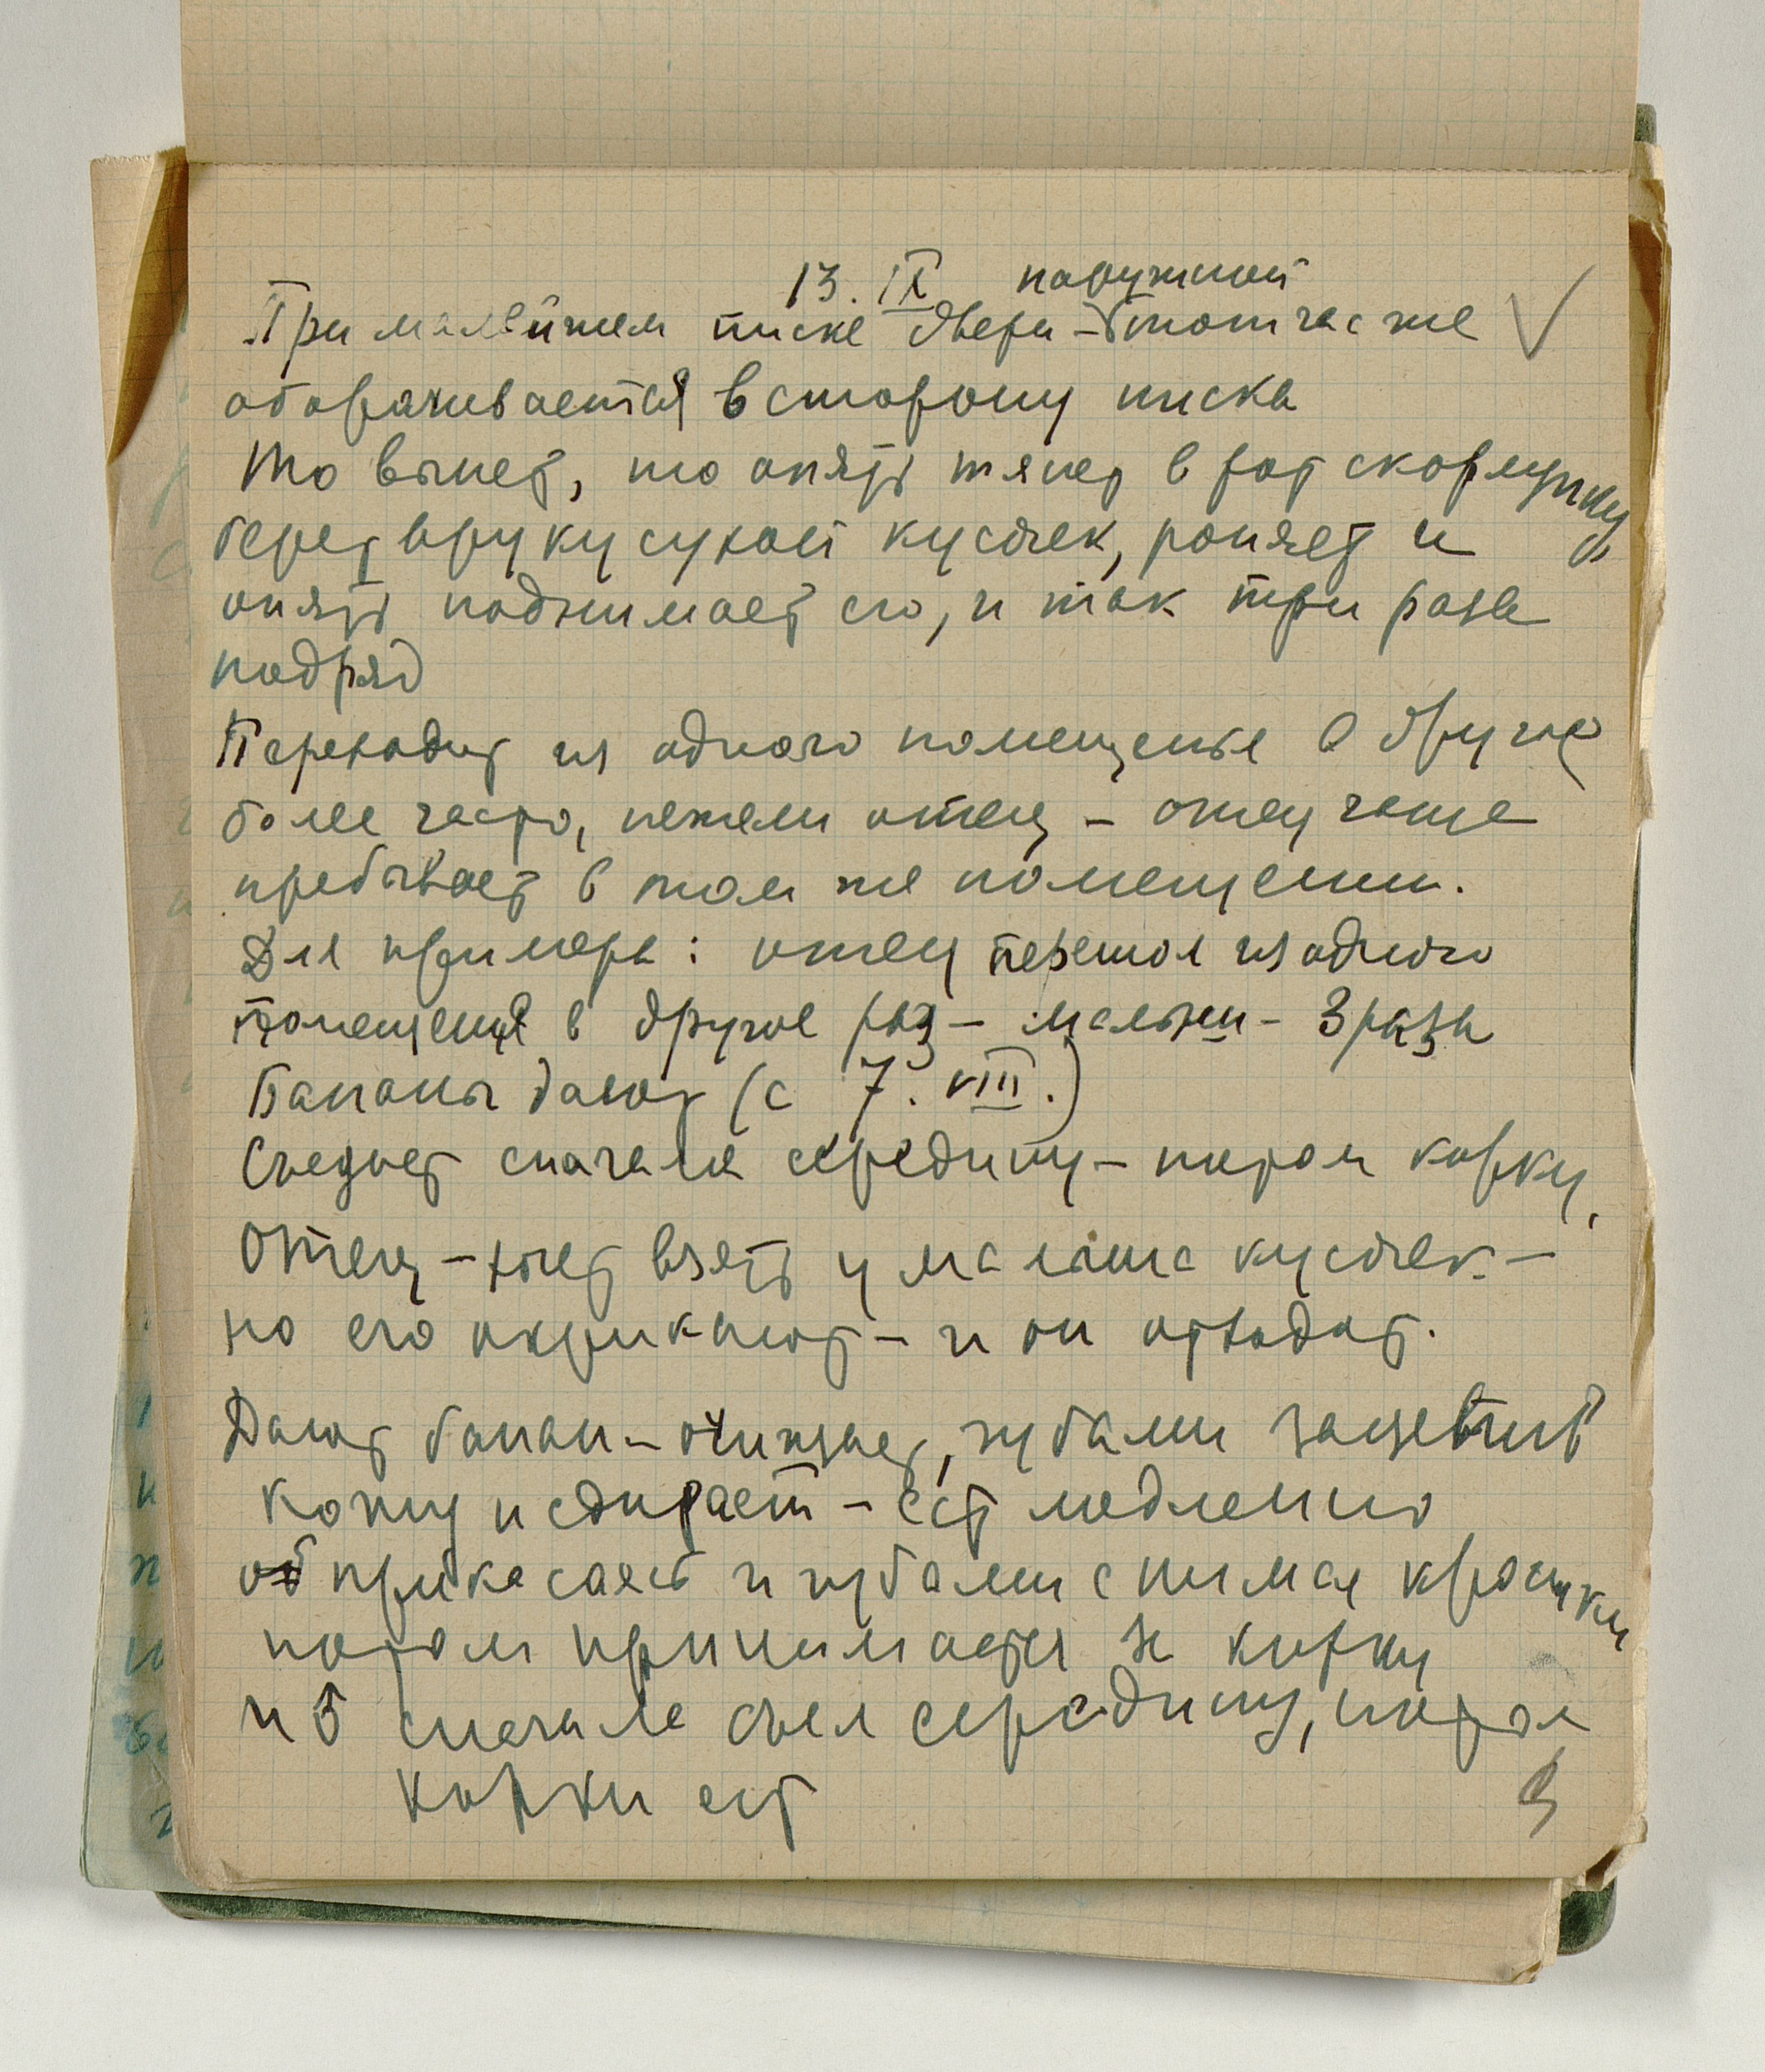 13. IX наружной
При малейшем писке двери – б тотчас же
оборачивается в сторону писка
То вынет, то опять тянет в рот скорлупку
берет в руку сухой кусочек, роняет и
опять поднимает его, и так три раза
подряд
Переходит из одного помещенья в другое
более часто, нежели отец – отец чаще
пребывает в том же помещении.
Для примера: отец перешол из одного
помещения в другое раз – малыш – 3 раза
Бананы дают (с 7. VIII.)
Съедает сначала середину – потом корку,
Отец – хочет взять у малыша кусочек –
но его окрикают – и он отходит.
Дают банан – очищает, зубами защепив
кожу и сдирает – ест медленно
прикасаясь и зубами снимая крошки
потом принимается за корку
и б сначала съел середину, потом
корки ест